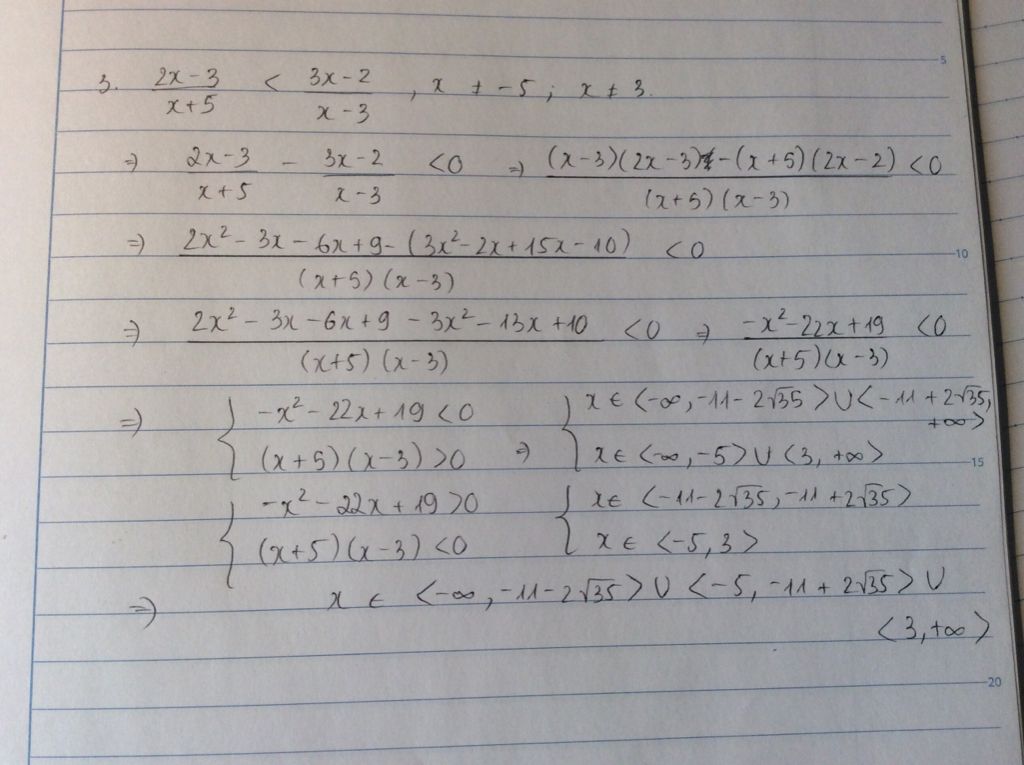 3. (2x-3)/(x+5) < (3x-2)/(x-3) , x ≠ -5 ; x ≠ 3.
⇒ (2x-3)/(x+5) - (3x-2)/(x-3) < 0 ⇒ ((x-3)(2x-3) - (x+5)(2x-2))/((x+5)(x-3)) < 0
⇒ (2x² - 3x - 6x + 9 - (3x² - 2x + 15x - 10))/((x+5)(x-3)) < 0
⇒ (2x² - 3x - 6x + 9 - 3x² - 13x + 10)/((x+5)(x-3)) < 0 ⇒ (-x² - 22x + 19)/((x+5)(x-3)) < 0
⇒ { -x² - 22x + 19 < 0 { x ∈ <-∞, -11 - 2√35> ∪ <-11 + 2√35, +∞>
(x+5)(x-3) > 0 ⇒ x ∈ <-∞, -5> ∪ <3, +∞>
{ -x² - 22x + 19 > 0 { x ∈ <-11 - 2√35, -11 + 2√35>
(x+5)(x-3) < 0 x ∈ <-5, 3>
⇒ x ∈ <-∞, -11 - 2√35> ∪ <-5, -11 + 2√35> ∪
<3, +∞>
5
10
15
20